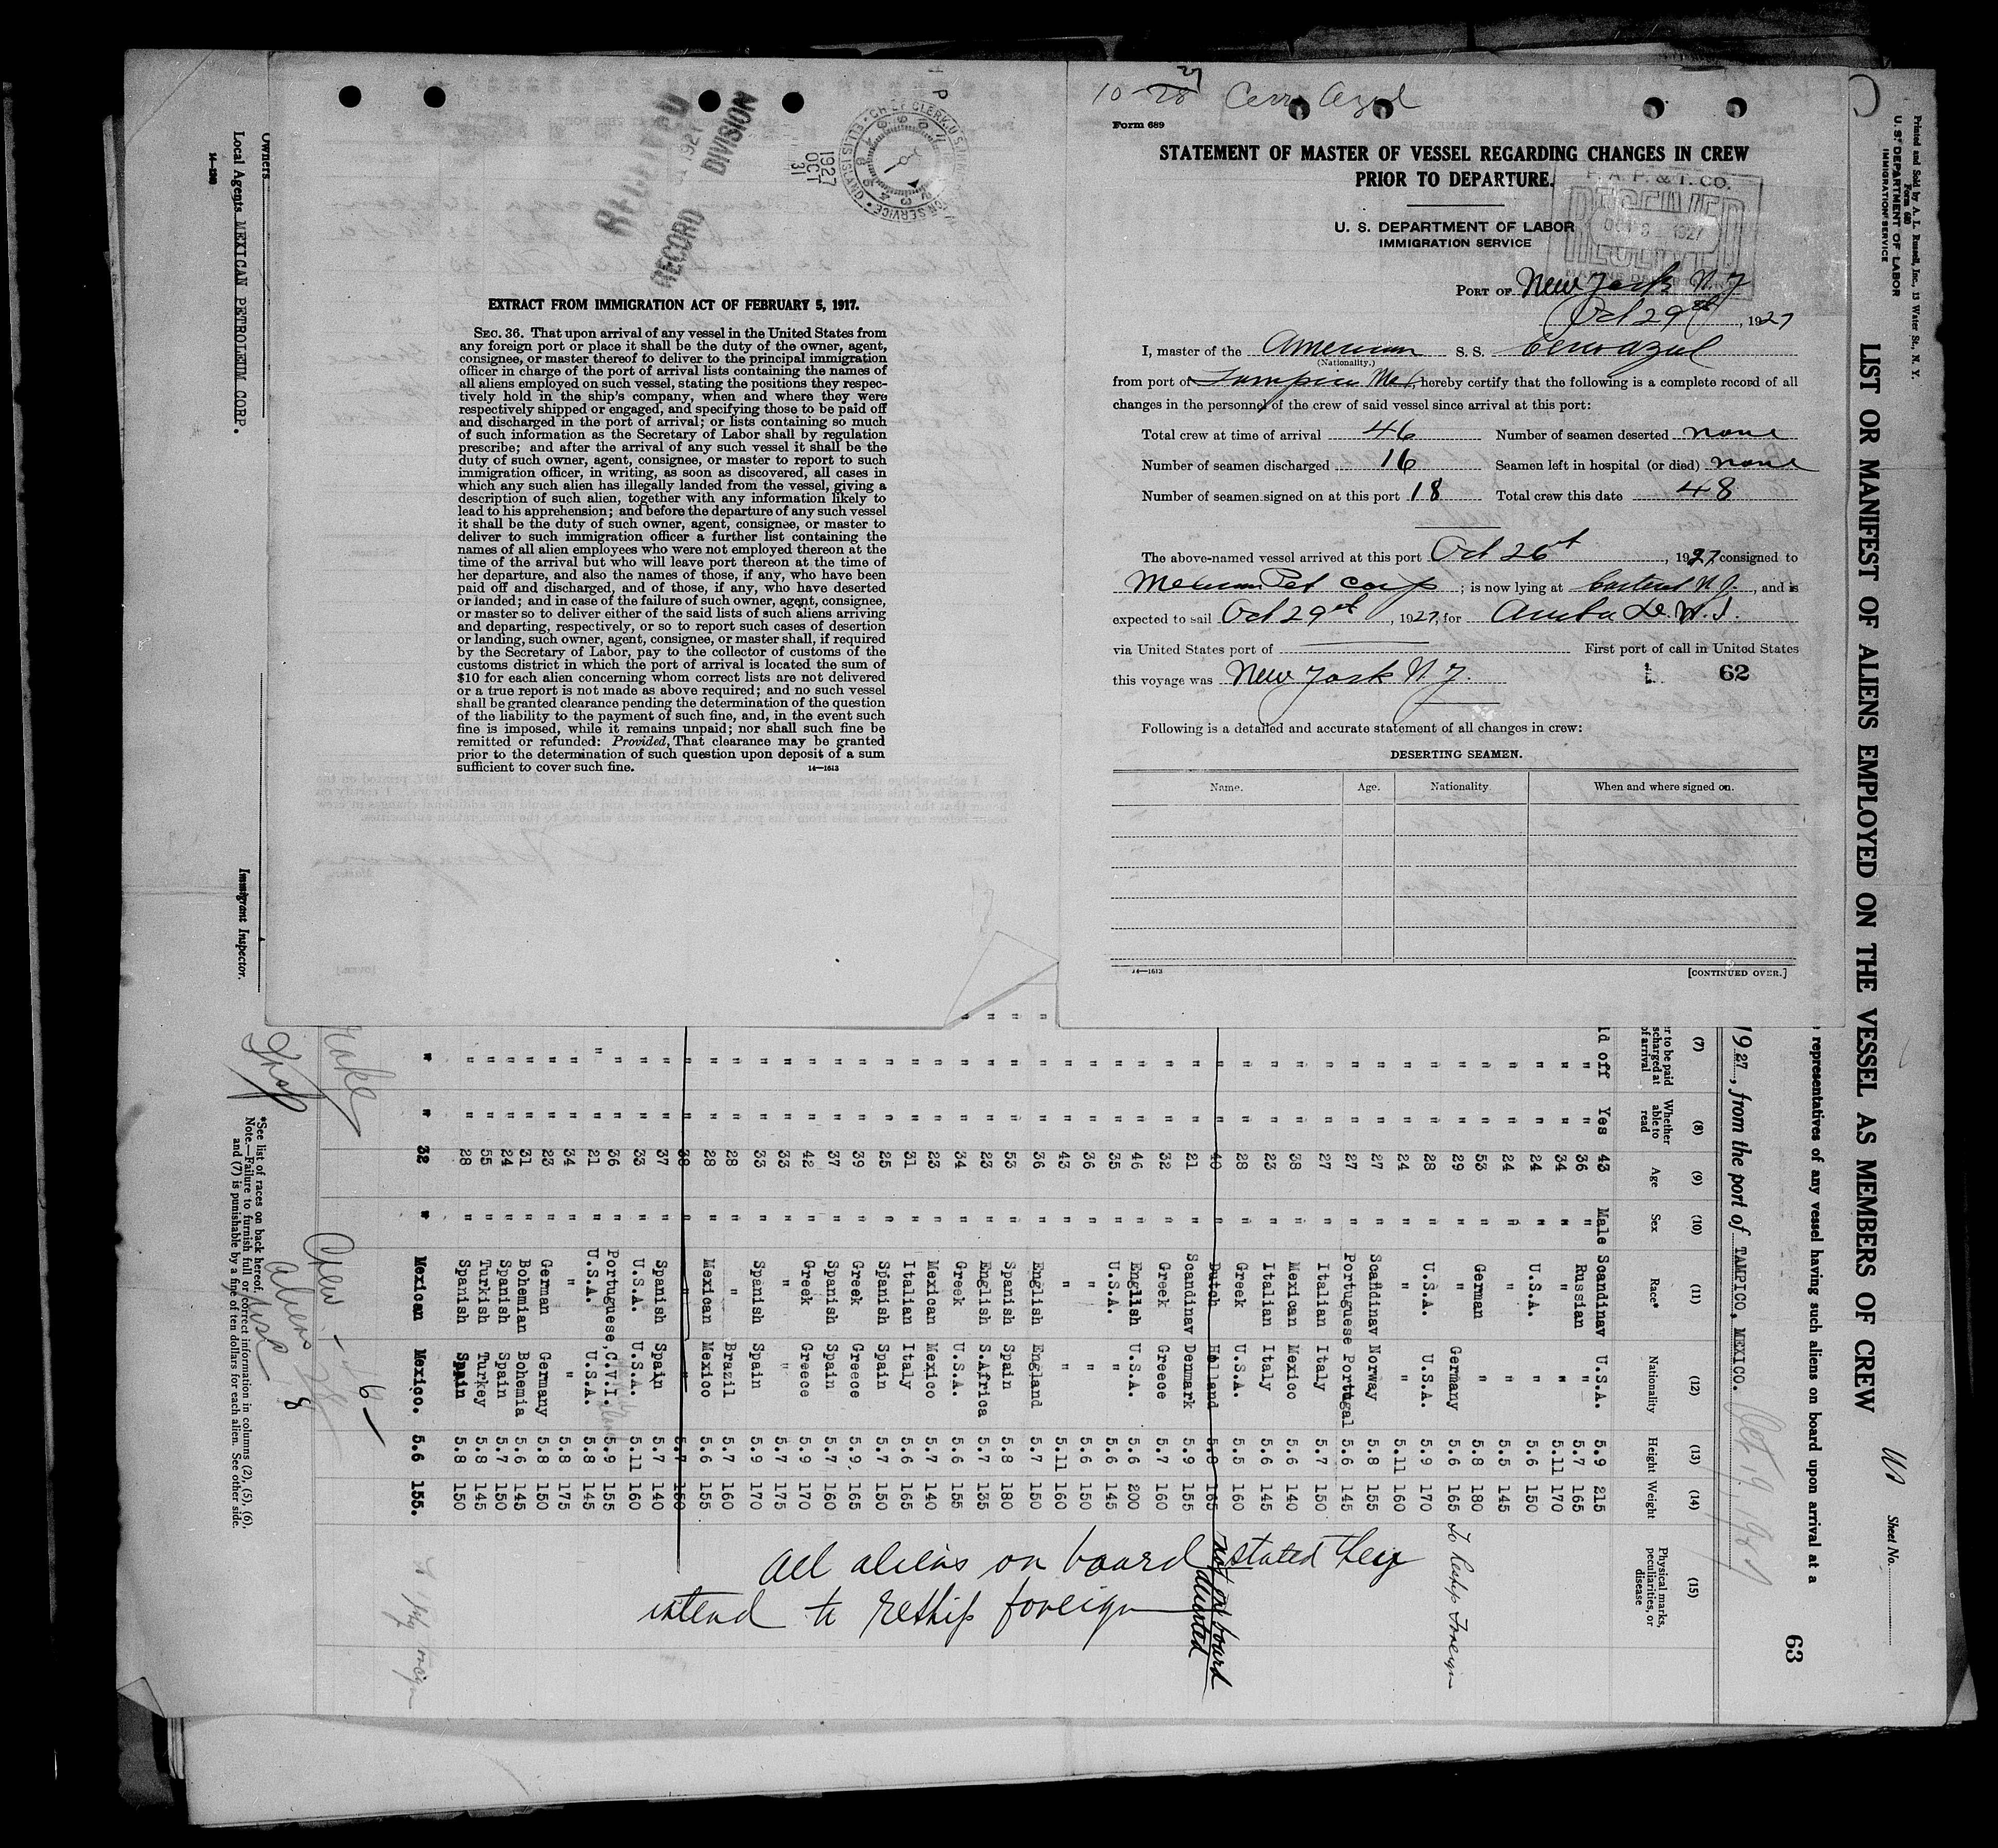 10-28 27 Cerro Azul
Form 689
STATEMENT OF MASTER OF VESSEL REGARDING CHANGES IN CREW
PRIOR TO DEPARTURE.
U. S. DEPARTMENT OF LABOR
IMMIGRATION SERVICE
P. A. P. & T. CO.
1927
RECEIVED
PORT OF New York N.Y
Oct 29th, 1927
I, master of the American S. S. Cerro Azul
(Nationality.)
from port of Tampico Mex, hereby certify that the following is a complete record of all
changes in the personnel of the crew of said vessel since arrival at this port:
Total crew at time of arrival 46 Number of seamen deserted none
Number of seamen discharged 16 Seamen left in hospital (or died) none
Number of seamen signed on at this port 18 Total crew this date 48
The above-named vessel arrived at this port Oct 26th, 1927 consigned to
Mexican Pet Corp; is now lying at Carteret N.J., and is
expected to sail Oct 29th, 1927, for Aruba D.W.I.
via United States port of First port of call in United States
this voyage was New York N.Y.
62
Following is a detailed and accurate statement of all changes in crew:
DESERTING SEAMEN.
Name. Age. Nationality. When and where signed on.
14—1613 [CONTINUED OVER.]
RECORD DIVISION
1927
OCT
31
EXTRACT FROM IMMIGRATION ACT OF FEBRUARY 5, 1917.
SEC. 36. That upon arrival of any vessel in the United States from
any foreign port or place it shall be the duty of the owner, agent,
consignee, or master thereof to deliver to the principal immigration
officer in charge of the port of arrival lists containing the names of
all aliens employed on such vessel, stating the positions they respec-
tively hold in the ship's company, when and where they were
respectively shipped or engaged, and specifying those to be paid off
and discharged in the port of arrival; or lists containing so much
of such information as the Secretary of Labor shall by regulation
prescribe; and after the arrival of any such vessel it shall be the
duty of such owner, agent, consignee, or master to report to such
immigration officer, in writing, as soon as discovered, all cases in
which any such alien has illegally landed from the vessel, giving a
description of such alien, together with any information likely to
lead to his apprehension; and before the departure of any such vessel
it shall be the duty of such owner, agent, consignee, or master to
deliver to such immigration officer a further list containing the
names of all alien employees who were not employed thereon at the
time of the arrival but who will leave port thereon at the time of
her departure, and also the names of those, if any, who have been
paid off and discharged, and of those, if any, who have deserted
or landed; and in case of the failure of such owner, agent, consignee,
or master so to deliver either of the said lists of such aliens arriving
and departing, respectively, or so to report such cases of desertion
or landing, such owner, agent, consignee, or master shall, if required
by the Secretary of Labor, pay to the collector of customs of the
customs district in which the port of arrival is located the sum of
$10 for each alien concerning whom correct lists are not delivered
or a true report is not made as above required; and no such vessel
shall be granted clearance pending the determination of the question
of the liability to the payment of such fine, and, in the event such
fine is imposed, while it remains unpaid; nor shall such fine be
remitted or refunded: Provided, That clearance may be granted
prior to the determination of such question upon deposit of a sum
sufficient to cover such fine.
14—1613
Printed and Sold by A. L. Russell, Inc., 13 Water St., N. Y.
Form 680
U. S. DEPARTMENT OF LABOR
IMMIGRATION SERVICE
Sheet No.
LIST OR MANIFEST OF ALIENS EMPLOYED ON THE VESSEL AS MEMBERS OF CREW
63
representatives of any vessel having such aliens on board upon arrival at a
1927, from the port of TAMPICO, MEXICO. Oct 19, 1927
(7) (8) (9) (10) (11) (12) (13) (14) (15)
to be paid
discharged at
of arrival
Whether able to read Age Sex Race* Nationality Height Weight Physical marks, peculiarities, or disease
d off Yes 43 Male Scandinav U.S.A. 5.9 215
" " 36 " Russian " 5.7 165
" " 34 " " " 5.11 170
" " 24 " U.S.A. " 5.6 150
" " 24 " " " 5.5 145
" " 53 " German " 5.8 180
" " 29 " " Germany 5.6 165 To Reship Foreign
" " 28 " U.S.A. U.S.A. 5.9 170
" " 24 " " " 5.11 160
" " 27 " Scandinav Norway 5.8 155
" " 27 " Portuguese Portugal 5.6 145
" " 27 " Italian Italy 5.7 150
" " 38 " Mexican Mexico 5.6 140
" " 23 " Italian Italy 5.6 145
" " 28 " Greek U.S.A. 5.5 160
" " 40 " Dutch Holland 5.8 165 not on board deserted
" " 21 " Scandinav Denmark 5.9 155
" " 32 " Greek Greece 5.7 160
" " 46 " English U.S.A. 5.6 200
" " 35 " U.S.A. " 5.6 145
" " 36 " " " 5.6 150
" " 43 " " " 5.11 160
" " 36 " English England 5.7 150
" " 53 " Spanish Spain 5.8 180
" " 23 " English S.Africa 5.7 135
" " 34 " Greek U.S.A. 5.6 155
" " 23 " Mexican Mexico 5.7 140
" " 31 " Italian Italy 5.6 165
" " 25 " Spanish Spain 5.7 150
" " 39 " Greek Greece 5.9 165
" " 37 " Spanish Spain 5.7 160
" " 42 " Greek Greece 5.9 170
" " 33 " " " 5.7 175
" " 33 " Spanish Spain 5.9 170
" " 28 " " Brazil 5.7 160
" " 28 " Mexican Mexico 5.6 155
" " 38 " " " 5.7 150
" " 37 " Spanish Spain 5.7 140
" " 33 " U.S.A. U.S.A. 5.11 160
" " 36 " Portuguese C.V.I. 5.9 155
" " 21 " U.S.A. U.S.A. 5.8 145
" " 34 " " " 5.8 175
" " 23 " German Germany 5.8 150
" " 31 " Bohemian Bohemia 5.6 145
" " 24 " Spanish Spain 5.7 150
" " 55 " Turkish Turkey 5.8 145
" " 28 " Spanish Spain 5.8 150
" " 32 " Mexican Mexico. 5.6 155.
All aliens on board stated they
intend to reship foreign
Crew
aliens
USC 8
*See list of races on back hereof.
Note.—Failure to furnish full or correct information in columns (2), (5), (6),
and (7) is punishable by a fine of ten dollars for each alien. See other side.
Owners
Local Agents MEXICAN PETROLEUM CORP.
Immigrant Inspector.
14—1240